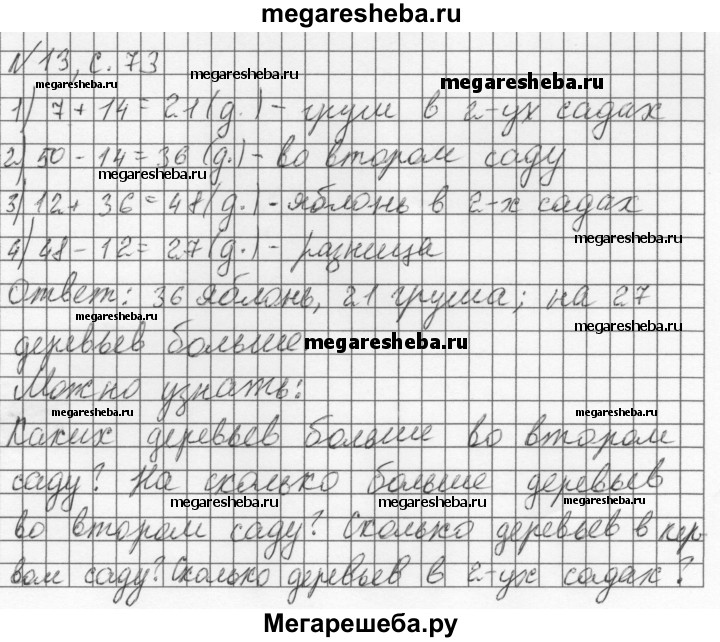 megaresheba.ru
№13, с. 73
megaresheba.ru megaresheba.ru megaresheba.ru
1) 7 + 14 = 21 (д.) - груш в 2-ух садах
2) 50 - 14 = 36 (д.) - во втором саду
megaresheba.ru
3) 12 + 36 = 48 (д.) - яблонь в 2-х садах
megaresheba.ru
4) 48 - 12 = 27 (д.) - разница
Ответ: 36 яблонь, 21 груша; на 27
megaresheba.ru megaresheba.ru
деревьев больше megaresheba.ru
Можно узнать:
megaresheba.ru megaresheba.ru
Каких деревьев больше во втором
саду? На сколько больше деревьев
megaresheba.ru megaresheba.ru megaresheba.ru
во втором саду? Сколько деревьев в пер-
вом саду? Сколько деревьев в 2-ух садах?
Мегарешеба.ру